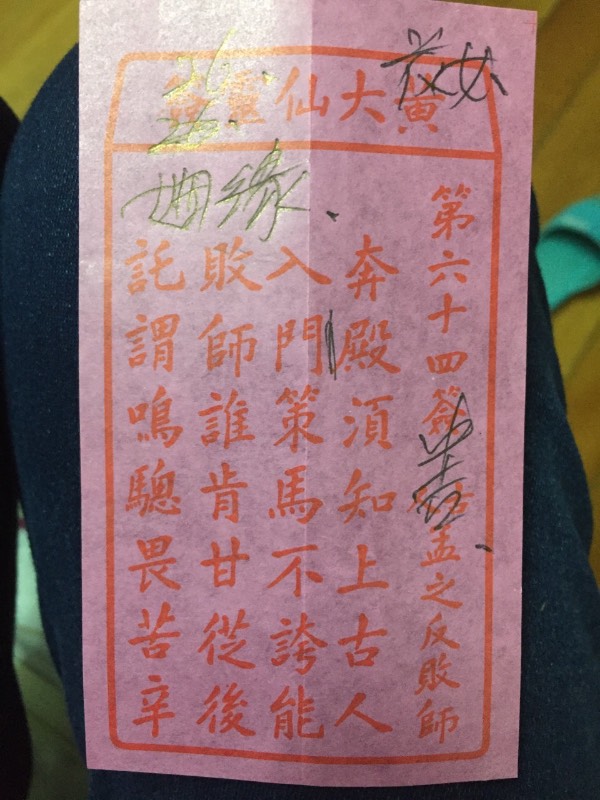 黃大仙靈簽
姻緣
第六十四簽 中吉 孟之反敗師
奔殿須知上古人
入門策馬不誇能
敗師誰肯甘從後
託謂鳴驄畏苦辛